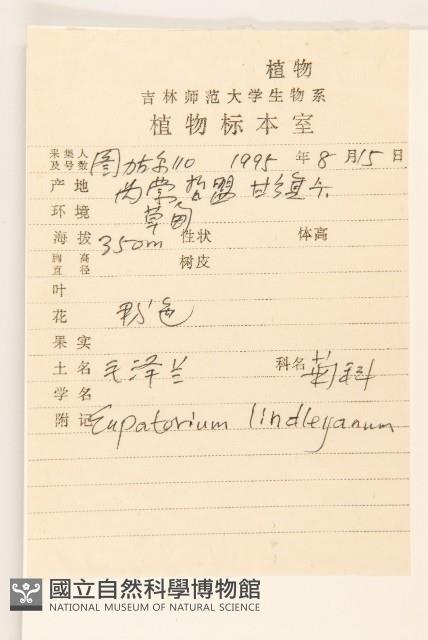 植物
吉林师范大学生物系
植物标本室
采集人及号数 图力古尔110 1995年8月15日
产地 内蒙哲盟甘旗卡
环境 草甸
海拔 350m 性状 体高
胸高直径 树皮
叶
花 粉色
果实
土名 毛泽兰 科名 菊科
学名
附记 Eupatorium lindleyanum
國立自然科學博物館
NATIONAL MUSEUM OF NATURAL SCIENCE